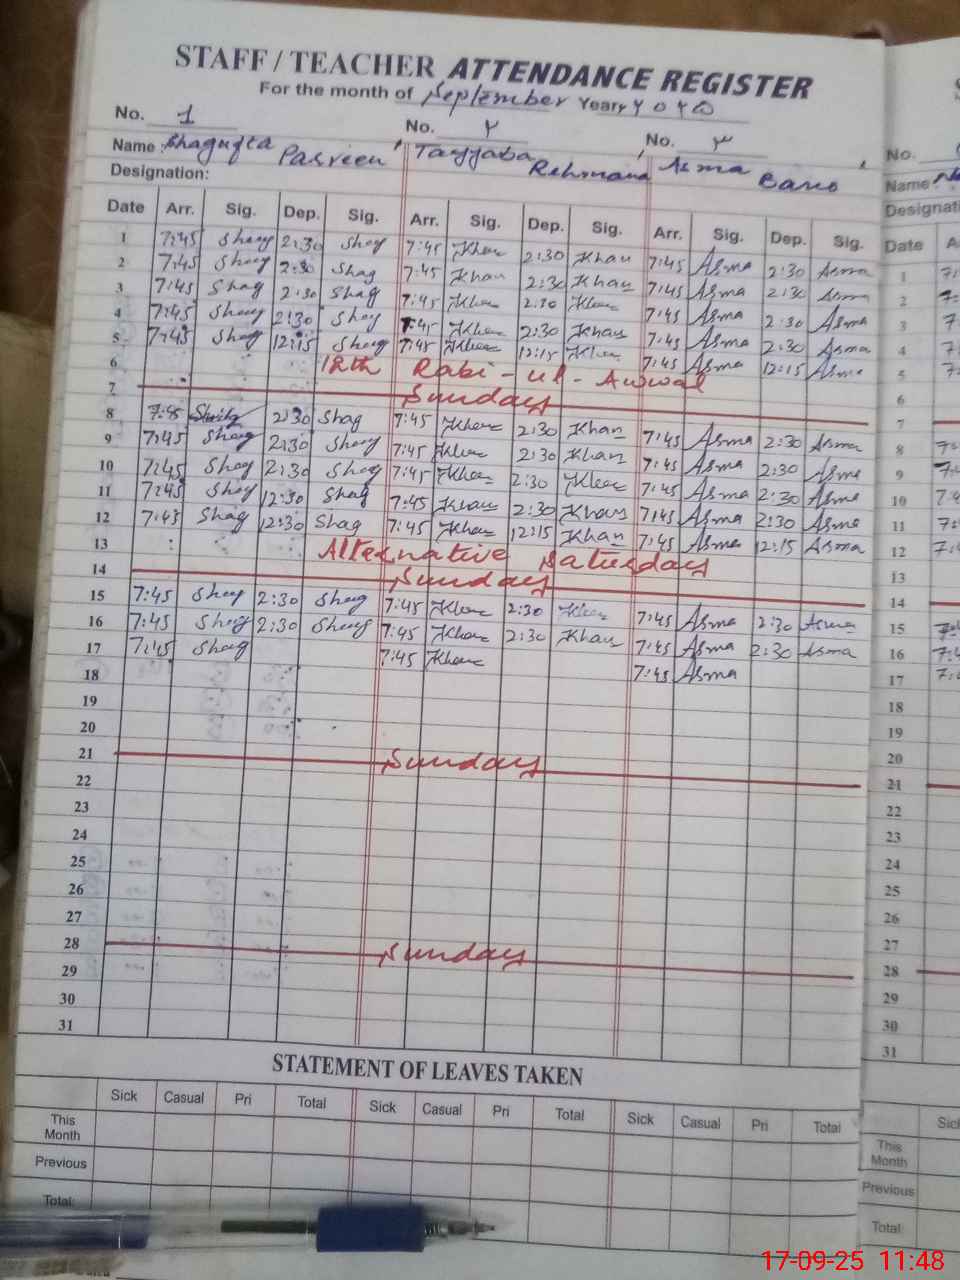 STAFF / TEACHER ATTENDANCE REGISTER
For the month of September Year ۲۰۲۵
No. 1 No. ۲ No. ۳ No.
Name: Shagufta Parveen, Tayyaba Rehmana, Asma Bano Name:
Designation: Designati
Date Arr. Sig. Dep. Sig. Arr. Sig. Dep. Sig. Arr. Sig. Dep. Sig. Date A
1 7:45 Shag 2:30 Shag 7:45 Khan 2:30 Khan 7:45 Asma 2:30 Asma 1
2 7:45 Shag 2:30 Shag 7:45 Khan 2:30 Khan 7:45 Asma 2:30 Asma 2
3 7:45 Shag 2:30 Shag 7:45 Khan 2:30 Khan 7:45 Asma 2:30 Asma 3
4 7:45 Shag 2:30 Shag 7:45 Khan 2:30 Khan 7:45 Asma 2:30 Asma 4
5 7:45 Shag 12:15 Shag 7:45 Khan 12:15 Khan 7:45 Asma 12:15 Asma 5
6 12th Rabi-ul-Awwal 6
7 Sunday 7
8 7:45 2:30 Shag 7:45 Khan 2:30 Khan 7:45 Asma 2:30 Asma 8
9 7:45 Shag 2:30 Shag 7:45 Khan 2:30 Khan 7:45 Asma 2:30 Asma 9
10 7:45 Shag 2:30 Shag 7:45 Khan 2:30 Khan 7:45 Asma 2:30 Asma 10
11 7:45 Shag 12:30 Shag 7:45 Khan 2:30 Khan 7:45 Asma 2:30 Asma 11
12 7:45 Shag 12:30 Shag 7:45 Khan 12:15 Khan 7:45 Asma 12:15 Asma 12
13 Alternative Saturday 13
14 Sunday 14
15 7:45 Shag 2:30 Shag 7:45 Khan 2:30 Khan 7:45 Asma 2:30 Asma 15
16 7:45 Shag 2:30 Shag 7:45 Khan 2:30 Khan 7:45 Asma 2:30 Asma 16
17 7:45 Shag 7:45 Khan 7:45 Asma 17
18 18
19 19
20 20
21 Sunday 21
22 22
23 23
24 24
25 25
26 26
27 27
28 Sunday 28
29 29
30 30
31 31
STATEMENT OF LEAVES TAKEN
Sick Casual Pri Total Sick Casual Pri Total Sick Casual Pri Total Sick
This Month This Month
Previous Previous
Total: Total:
17-09-25 11:48